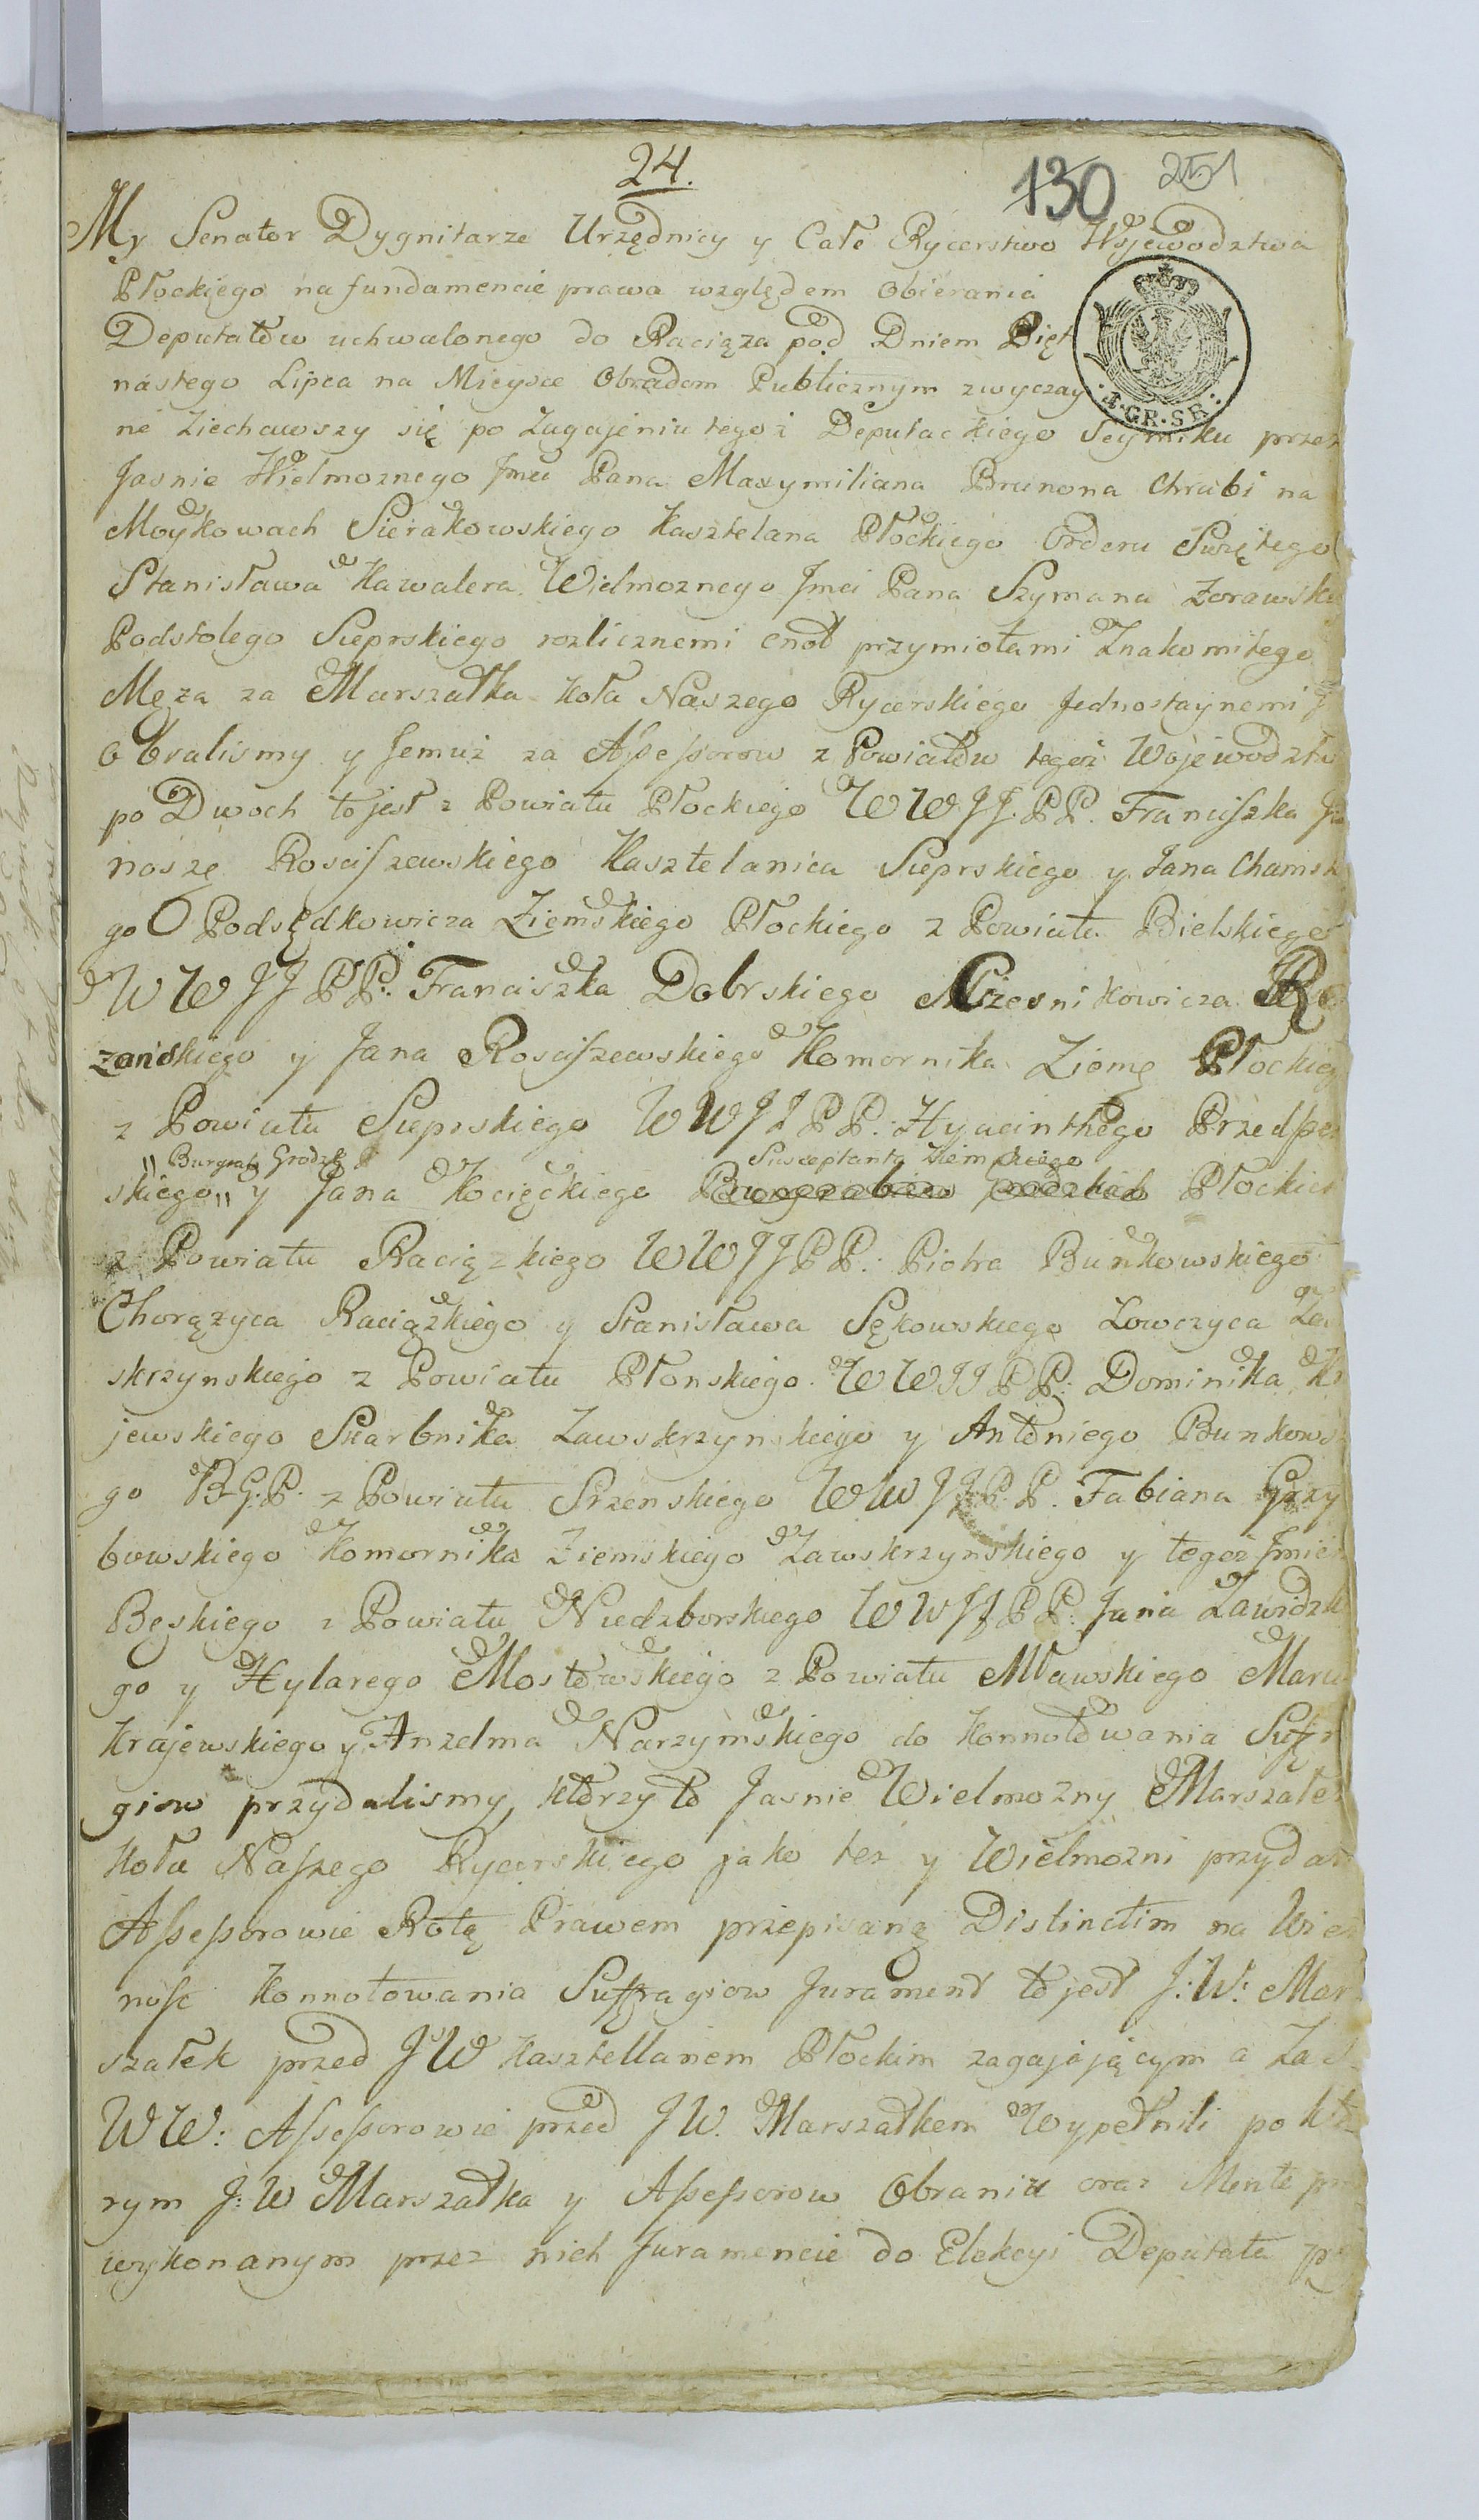 24.
130 251
My Senator Dygnitarze Urzędnicy y Całe Rycerstwo Wojewodztwa
Płockiego na fundamencie prawa względem Obierania
Deputatow uchwalonego do Raciąża pod Dniem Pięt
nastego Lipca na Mieysce Obradom Publicznym zwyczay
4·GR·SR
ne Ziechawszy się po Zagajeniu tegoż Deputackiego Seymiku przez
Jasnie Wielmoznego Jmci Pana Maxymiliana Brunona Chrabi na
Moykowach Sierakowskiego Kasztelana Płockiego Orderu Swiętego
Stanisława Kawalera Wielmoznego Jmci Pana Szymana Zorawski
Podstolego Sieprskiego rozlicznemi cnot przymiotami Znakomitego
Męza za Marszałka Koła Naszego Rycerskiego Jednostaynemi
Obralismy y Jemuż za Assessorow z Powiatow tegoż Wojewodztw
po Dwoch to jest z Powiatu Płockiego WWJJ.PP. Franciszka
noszę Rosciszewskiego Kasztelanica Sieprskiego y Jana Chamsk
go Podsędkowicza Ziemskiego Płockiego z Powiatu Bielskiego
WWJJPP. Franciszka Dobrskiego Czesnikowicza Ro
zanskiego y Jana Rosciszewskiego Komornika Ziemę Płockieg
z Powiatu Sieprskiego WWJJPP: Hyacinthego Przedpeł
" Burgrabi Grodz Susceptanta Ziemskiego
skiego " y Jana Kocięckiego Burgrabiego Grodzkieh Płockieg
z Powiatu Raciązkiego WWJJPP: Piotra Bunkowskiego
Chorążyca Raciążkiego y Stanisława Sękowskiego Lowczyca Zaw
skrzynskiego z Powiatu Płonskiego WWJJPP: Dominika K
jewskiego Skarbnika Zawskrzynskiego y Antoniego Bunkows
go B.G.P. z Powiatu Srzenskiego WWJJP.P. Fabiana Grzy
bowskiego Komornika Ziemskiego Zawskrzynskiego y tegoż Jmien
Bęskiego z Powiatu Niedzborskiego WWJJPP: Jana Zawidzk
go y Hylarego Mostowskiego z Powiatu Mławskiego Marc
Krajewskiego y Anzelma Narzymskiego do Konnotowania Suffr
giow przydalismy, ktorzy to Jasnie Wielmozny Marszałek
Koła Naszego Rycerskiego jako też y Wielmozni przydan
Assessorowie Rotę Prawem przepisaną Distinctim na Wier
nosc Konnotowania Suffragiow Jurament to jest J:W: Mar
szałek przed JW Kasztellanem Płockim zagajającym a Zaś
WW: Assessorowie przed JW. Marszałkem Wypełnili po kto
rym J:W Marszałka y Assessorow Obraniu oraz Mente
wykonanym przez nich Juramencie do Elekcyi Deputata